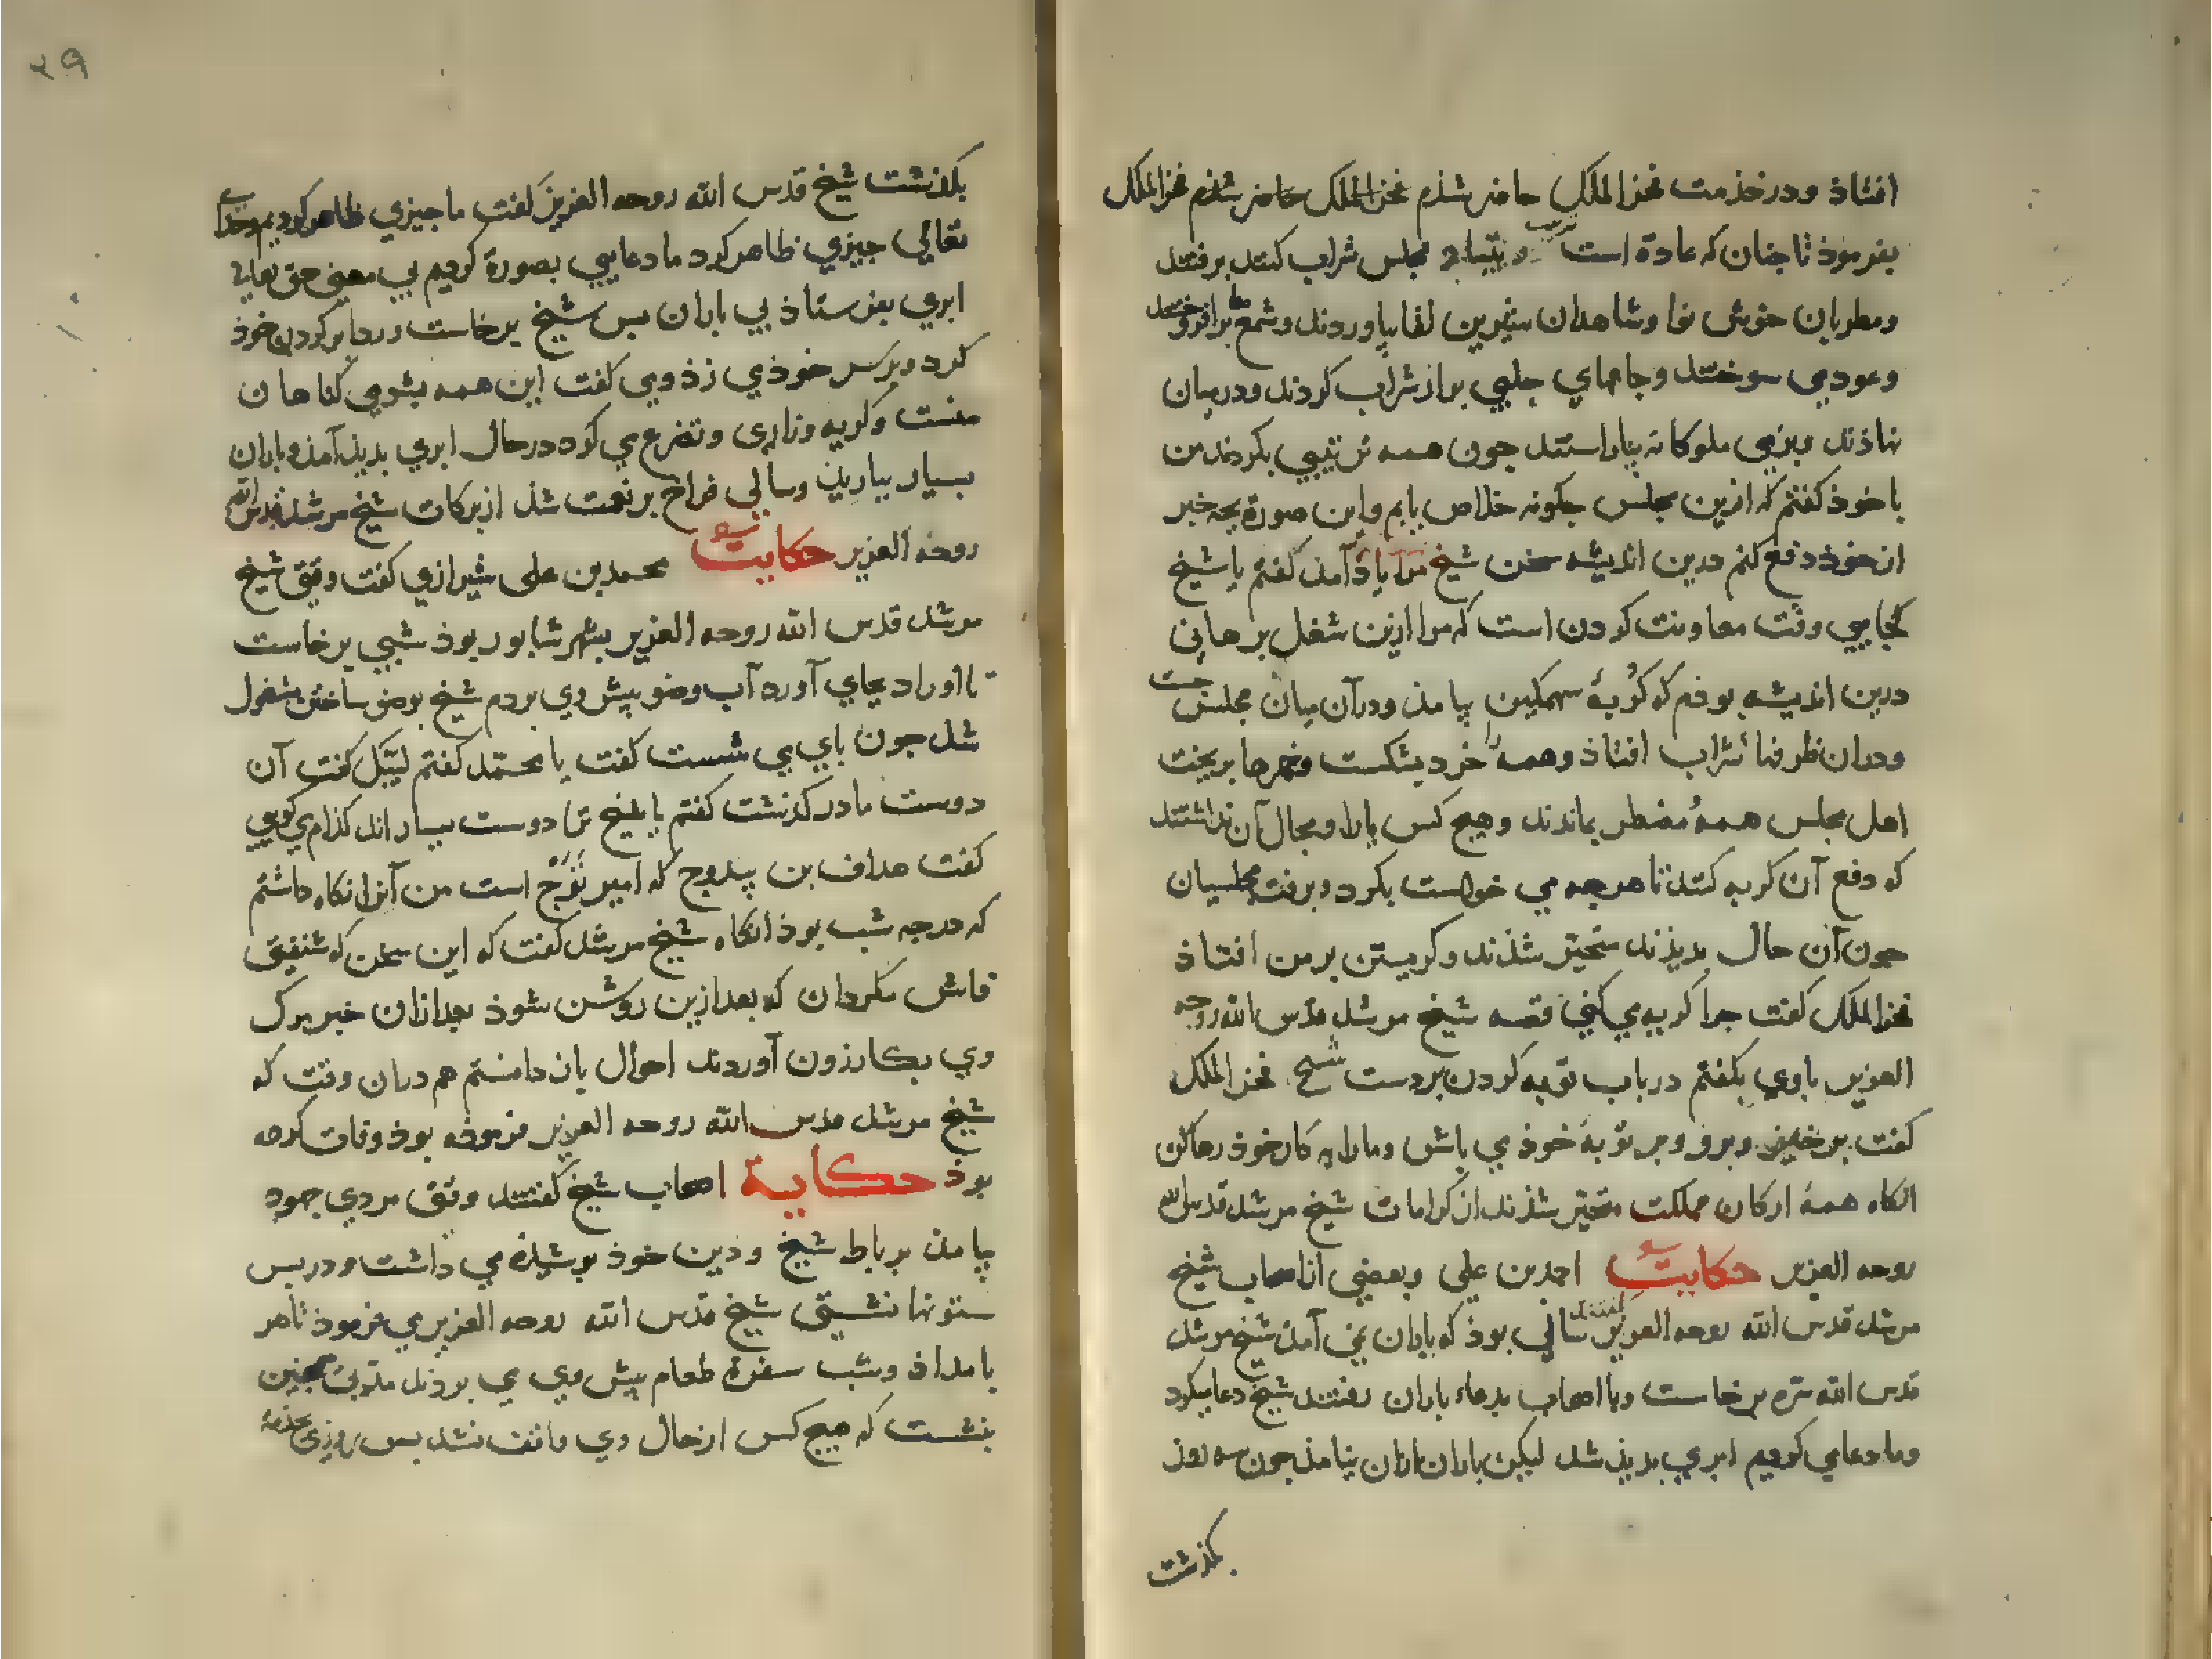 افتاذ و در خذمت فخرالملک حاضر شذم فخرالملک حاضر شذم فخرالملک
بفرموذ تا جنان که عادة است ترتیب مجلس شراب کنند برفتند
ومطربان خوش نوا وشاهدان شیرین لقا بیاوردند وشمعها برافروختند
وعود می سوختند وجامهای جلبی بر از شراب کردند ودر میان
نهاذند وبزمی ملوکانه بیاراستند جون همه ترتیبی بکردند من
با خوذ کفتم که ازین مجلس جکونه خلاص یابم واین صورة بجه خبر
از خوذ دفع کنم درین اندیشه سخن شیخ مرا یاذ آمذ کفتم یا شیخ
کجایی وقت معاونت کردن است که مرا ازین شغل برهانی
درین اندیشه بوذم که کربهٔ سهمکین بیامذ ودر آن میان مجلس جست
ودران ظرفهاء شراب افتاذ وهمه را خرد بشکست وخمرها بریخت
اهل مجلس همه مضطر بماندند وهیج کس یارا ومجال آن نداشتند
که دفع آن کربه کنند تا هرجه می خواست بکرد وبرفت مجلسیان
جون آن حال بدیذند متحیر شذند وکریستن بر من افتاذ
فخرالملک کفت جرا کریه می کنی قصه شیخ مرشد قدس الله روحه
العزیز باوی بکفتم در باب توبه کردن بر دست شیخ فخرالملک
کفت برخیز وبرو وبر توبهٔ خوذ می باش ومارا به کار خوذ رها کن
انکاه همهٔ ارکان مملکت متحیر شذند از کرامات شیخ مرشد قدس الله
روحه العزیز حکایت احمد بن علی وبعضی از اصحاب شیخ
مرشد قدس الله روحه العزیز کفتند سالی بوذ که باران نمی آمذ شیخ مرشد
قدس الله سره برخاست وبا اصحاب بدعاء باران رفتند شیخ دعا میکرد
وما دعا می کردیم ابری بدیذ شد لیکن باران ازان نیامذ جون سه روز
بکذشت
۲۹
بکذشت شیخ قدس الله روحه العزیز کفت ما جیزی ظاهر کردیم وخدای
تعالی جیزی ظاهر کرد ما دعایی بصورة کردیم بی معنی حق تعالی
ابری بفرستاذ بی باران بس شیخ برخاست وردا بر کردن خوذ
کرد وبر سر خوذ می زذ ومی کفت این همه بشومی کناهان
منست وکریه وزاری وتضرع می کرد در حال ابری بدیذ آمذ وباران
بسیار بباریذ وسالی فراخ بر نعمت شذ از برکات شیخ مرشد قدس الله
روحه العزیز حکایت محمد بن علی شیرازی کفت وقتی شیخ
مرشد قدس الله روحه العزیز بشهر شابور بوذ شبی برخاست
تا اوراد بجای آورد آب وضو بیش وی بردم شیخ بوضو ساختن مشغول
شد جون بای می شست کفت یا محمد کفتم لبیک کفت آن
دوست ما درکذشت کفتم یا شیخ ترا دوست بسیار اند کذام می کویی
کفت هداف بن که امیر است من آنرا نکاه داشتم
که درجه شب بوذ انکاه شیخ مرشد کفت که این سخن که شنیذی
فاش مکردان که بعد ازین روشن شوذ بعد ازان خبر مرک
وی بکازرون آوردند احوال باز دانستم هم دران وقت که
شیخ مرشد قدس الله روحه العزیز فرموذه بوذ وفات کرده
بوذ حکایة اصحاب شیخ کفتند وقتی مردی جهود
بیامذ برباط شیخ ودین خوذ بوشیذه می داشت ودر بس
ستونها نشستی شیخ قدس الله روحه العزیز می فرموذ تا هر
بامداد وشب سفرهٔ طعام بیش وی می بردند مدتی همجنین
بنشست که هیج کس از حال وی واقف نشد بس روزی